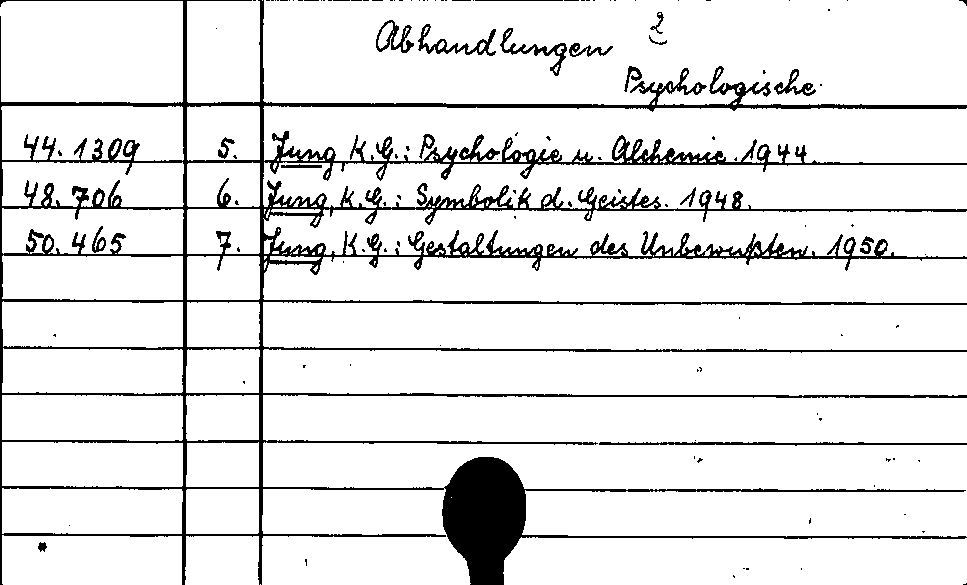 Abhandlungen 2
Psychologische
44.1309 5. Jung, K.G.: Psychologie u. Alchemie. 1944.
48.706 6. Jung, K.G.: Symbolik d. Geistes. 1948.
50.465 7. Jung, K.G.: Gestaltungen des Unbewußten. 1950.